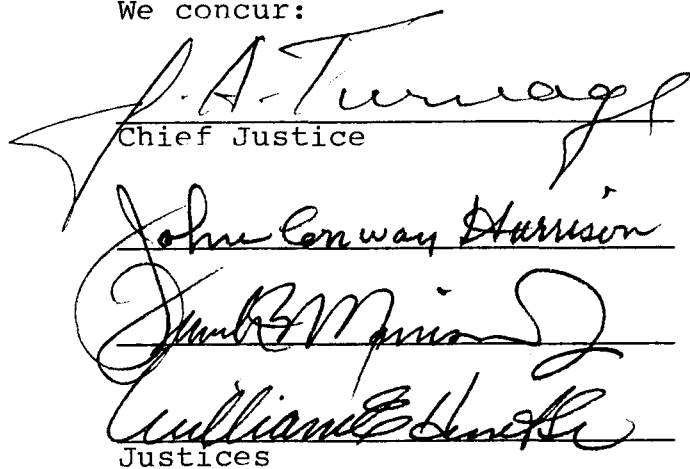 We concur:
J. A. Turnage
Chief Justice
John Conway Harrison
Frank B. Morrison Jr
William E Hunt Sr
Justices